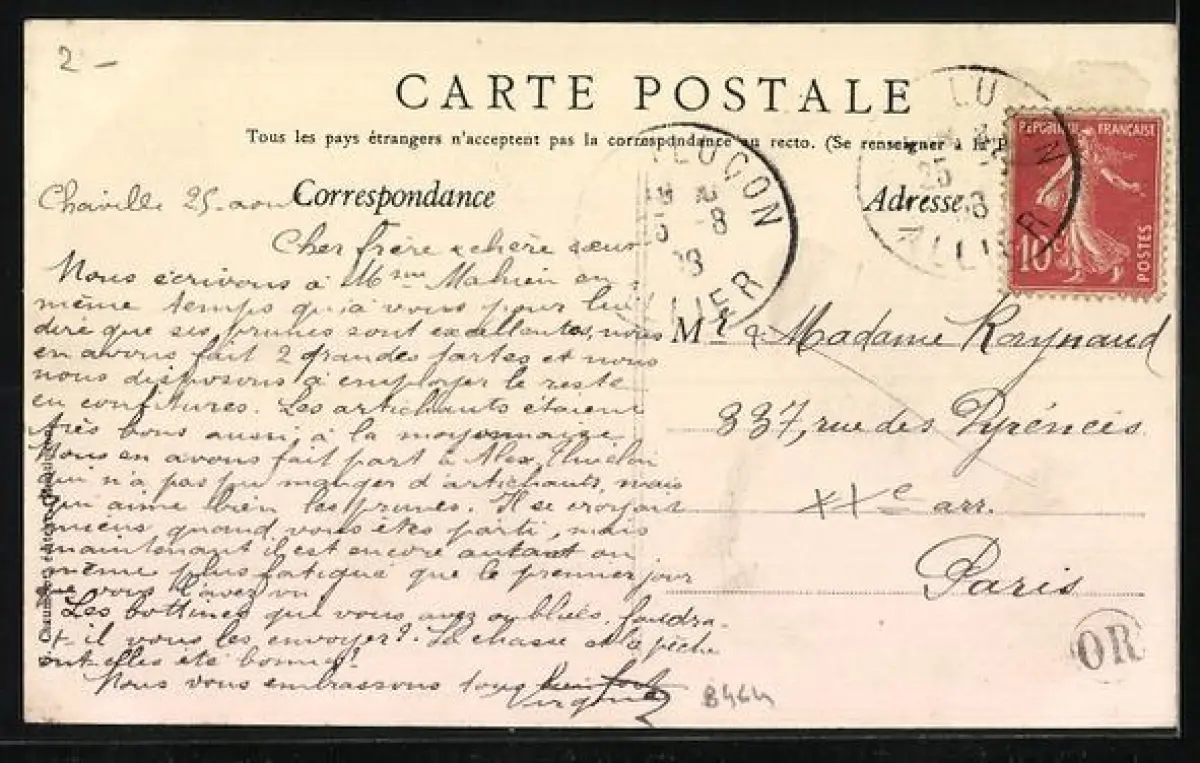 2 -
CARTE POSTALE
Tous les pays étrangers n'acceptent pas la correspondance au recto. (Se renseigner à la P
Correspondance
Adresse
LUÇON
ALLIER
25 -8
REPUBLIQUE FRANÇAISE
10c
POSTES
25 aou
Cher frère & chère sœur
Nous écrivons à Mme Mahieu en
même temps qu'à vous pour lui
dire que ses prunes sont excellentes, nous
en avons fait 2 grandes tartes et nous
nous disposons à employer le reste
en confitures. Les artichauts étaient
très bons aussi, à la mayonnaise
Nous en avons fait part à Alex
qui n'a pas pu manger d'artichauts, mais
qui aime bien les prunes. Il se croyait
mieux quand vous êtes parti, mais
maintenant il est encore autant ou
même plus fatigué que le premier jour
que vous l'avez vu
Les bottines que vous avez oubliées, faudra-
t-il vous les envoyer? La chasse et la pêche
ont-elles été bonnes?
Nous vous embrassons tous bien fort
Mr & Madame Raynaud
337, rue des Pyrénées
XXe arr.
Paris
OR
8464